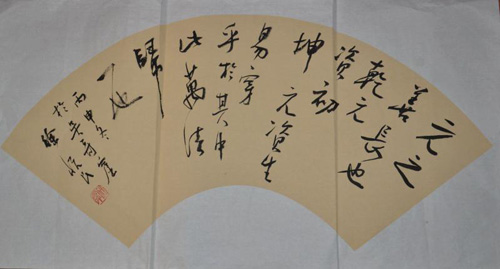 元之
善長也
乾元
資
坤
元資生
初
易穿
乎於其中
此萬法
歸
一也
丙申冬
於吳
徐